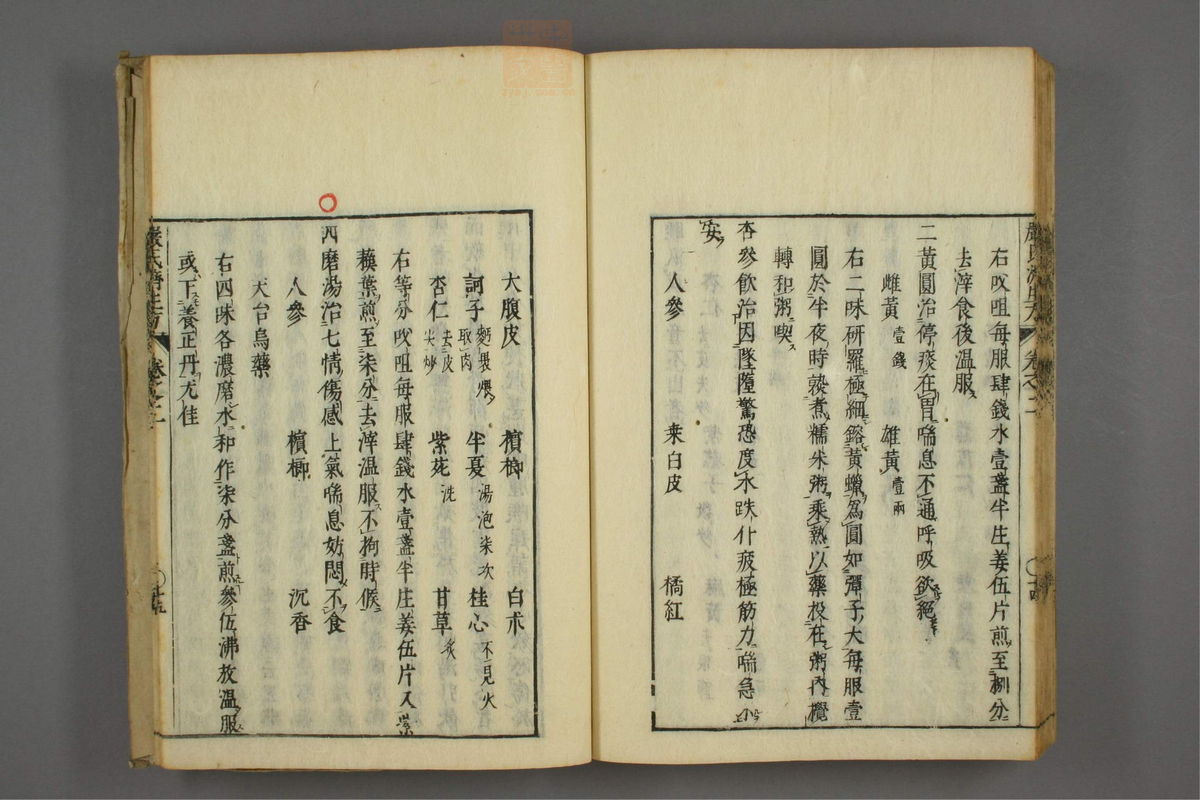 右㕮咀每服肆錢水壹盞半生姜伍片煎至捌分
去滓食後溫服
二黃圓治停痰在胃喘息不通呼吸欲絕
雌黃壹錢 雄黃壹兩
右二味研羅極細鎔黃蠟為圓如彈子大每服壹
圓於半夜時熱煮糯米粥乘熱以藥投在粥內攪
轉和粥喫
杏參飲治因墜墮驚恐度水跌仆疲極筋力喘急不
安
人參 桒白皮 橘紅
大腹皮 檳榔 白朮
訶子麪裹煨取肉 半夏湯泡柒次 桂心不見火
杏仁去皮尖炒 紫菀洗 甘草炙
右等分㕮咀每服肆錢水壹盞半生姜伍片入紫
蘇葉煎至柒分去滓溫服不拘時候
四磨湯治七情傷感上氣喘息妨悶不食
人參 檳榔 沉香
天台烏藥
右四味各濃磨水和作柒分盞煎參伍沸放溫服
或下養正丹尤佳
嚴氏濟生方 卷之二